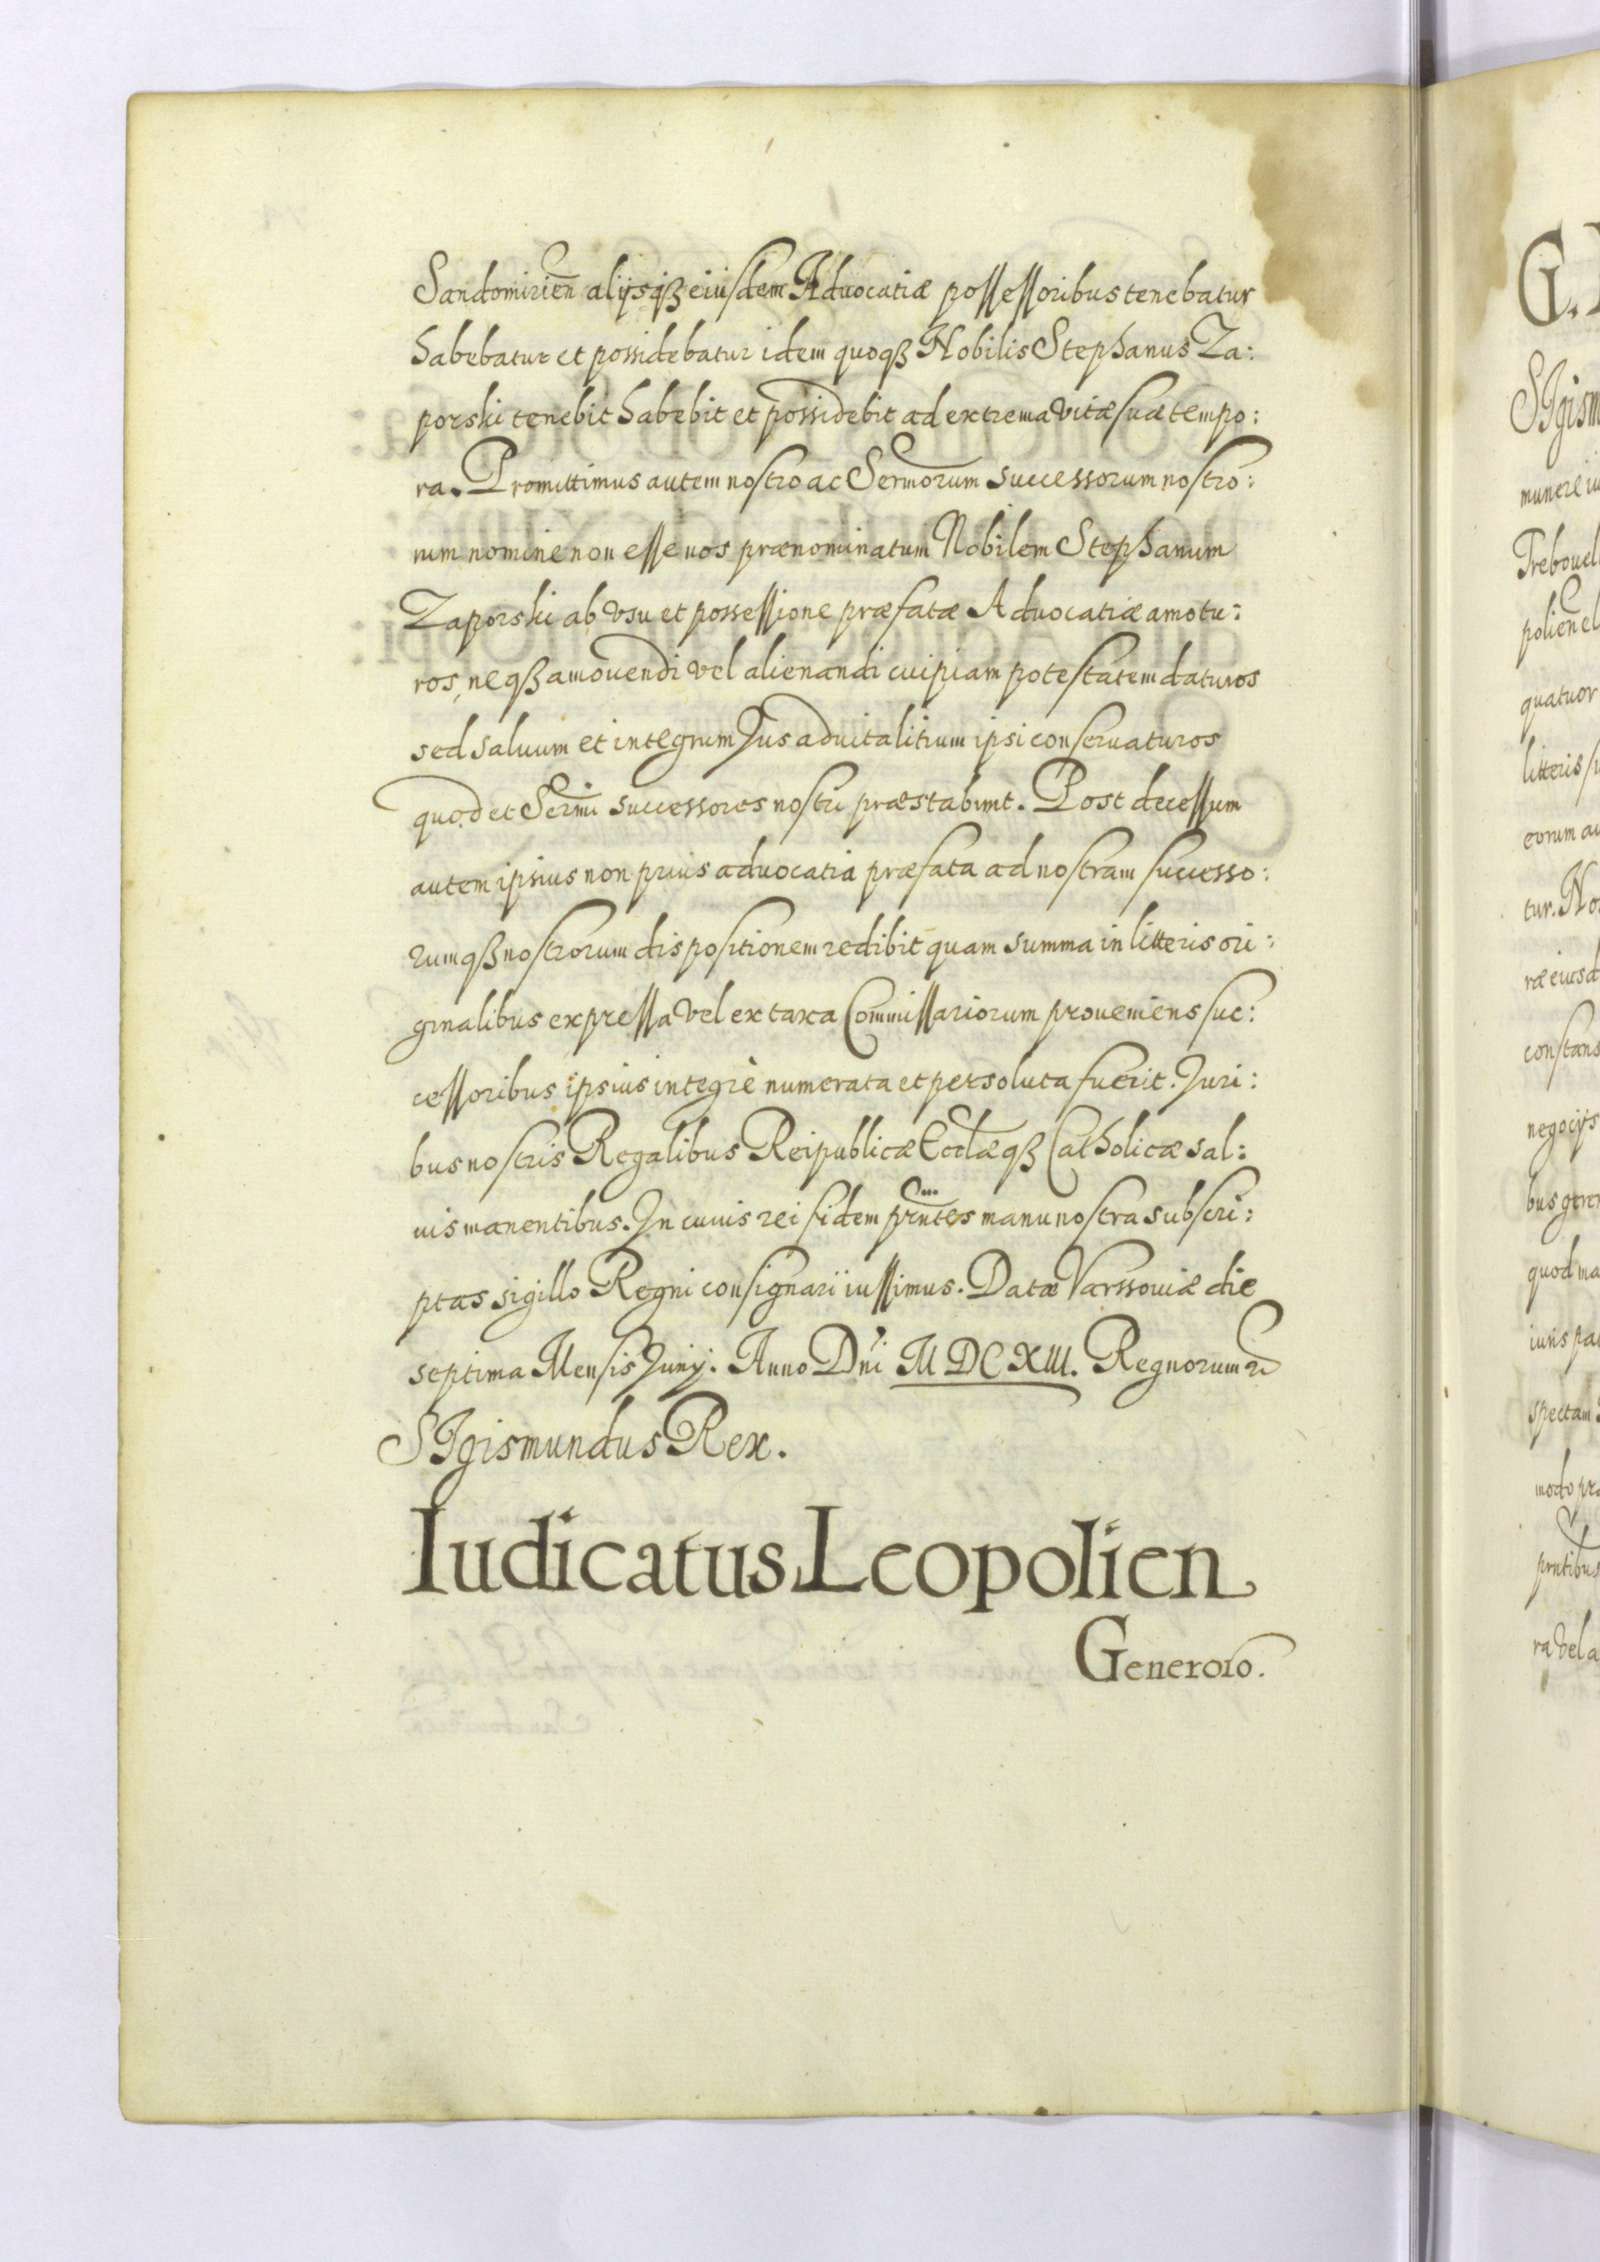 Sandomirien̄ alijsqꝫ eiusdem Advocatiæ possessoribus tenebatur
habebatur et possidebatur idem quoqꝫ Nobilis Stephanus Za:
porski tenebit habebit et possidebit ad extrema vitæ suæ tempo:
ra. Promittimus autem nostro ac Sermorum successorum nostro:
rum nomine non esse nos prænominatum Nobilem Stephanum
Zaporski ab vsu et possessione præfatæ Advocatiæ amotu:
ros, neqꝫ amouendi vel alienandi cuipiam potestatem daturos
sed saluum et integrum Jus aduitalitium ipsi conseruaturos
quod et Sermi successores nostri præstabunt. Post decessum
autem ipsius non prius aduocatia præfata ad nostram successo:
rumqꝫ nostrorum dispositionem redibit quam summa in litteris ori:
ginalibus expressa vel ex taxa Commissariorum proueniens suc:
cessoribus ipsius integrè numerata et persoluta fuerit. Juri:
bus nostris Regalibus Reipublicæ Ecclæqꝫ Catholicæ sal:
uis manentibus. In cuius rei fidem prntes manu nostra subscri:
ptas sigillo Regni consignari iussimus. Datæ Varssouiæ die
septima Mensis Junij. Anno Dni M DC XIII. Regnorum
SIgismundus Rex.
Iudicatus Leopolien
Generoso.
G.
SIgism
munere iu
Trebouel
polien el
quatuor
litteris
eorum au
tur. No
ræ eiusd
constans
negocijs
bus gerer
quod ma
iuris pa
spectam
modo pra
prntibus
ra vel a